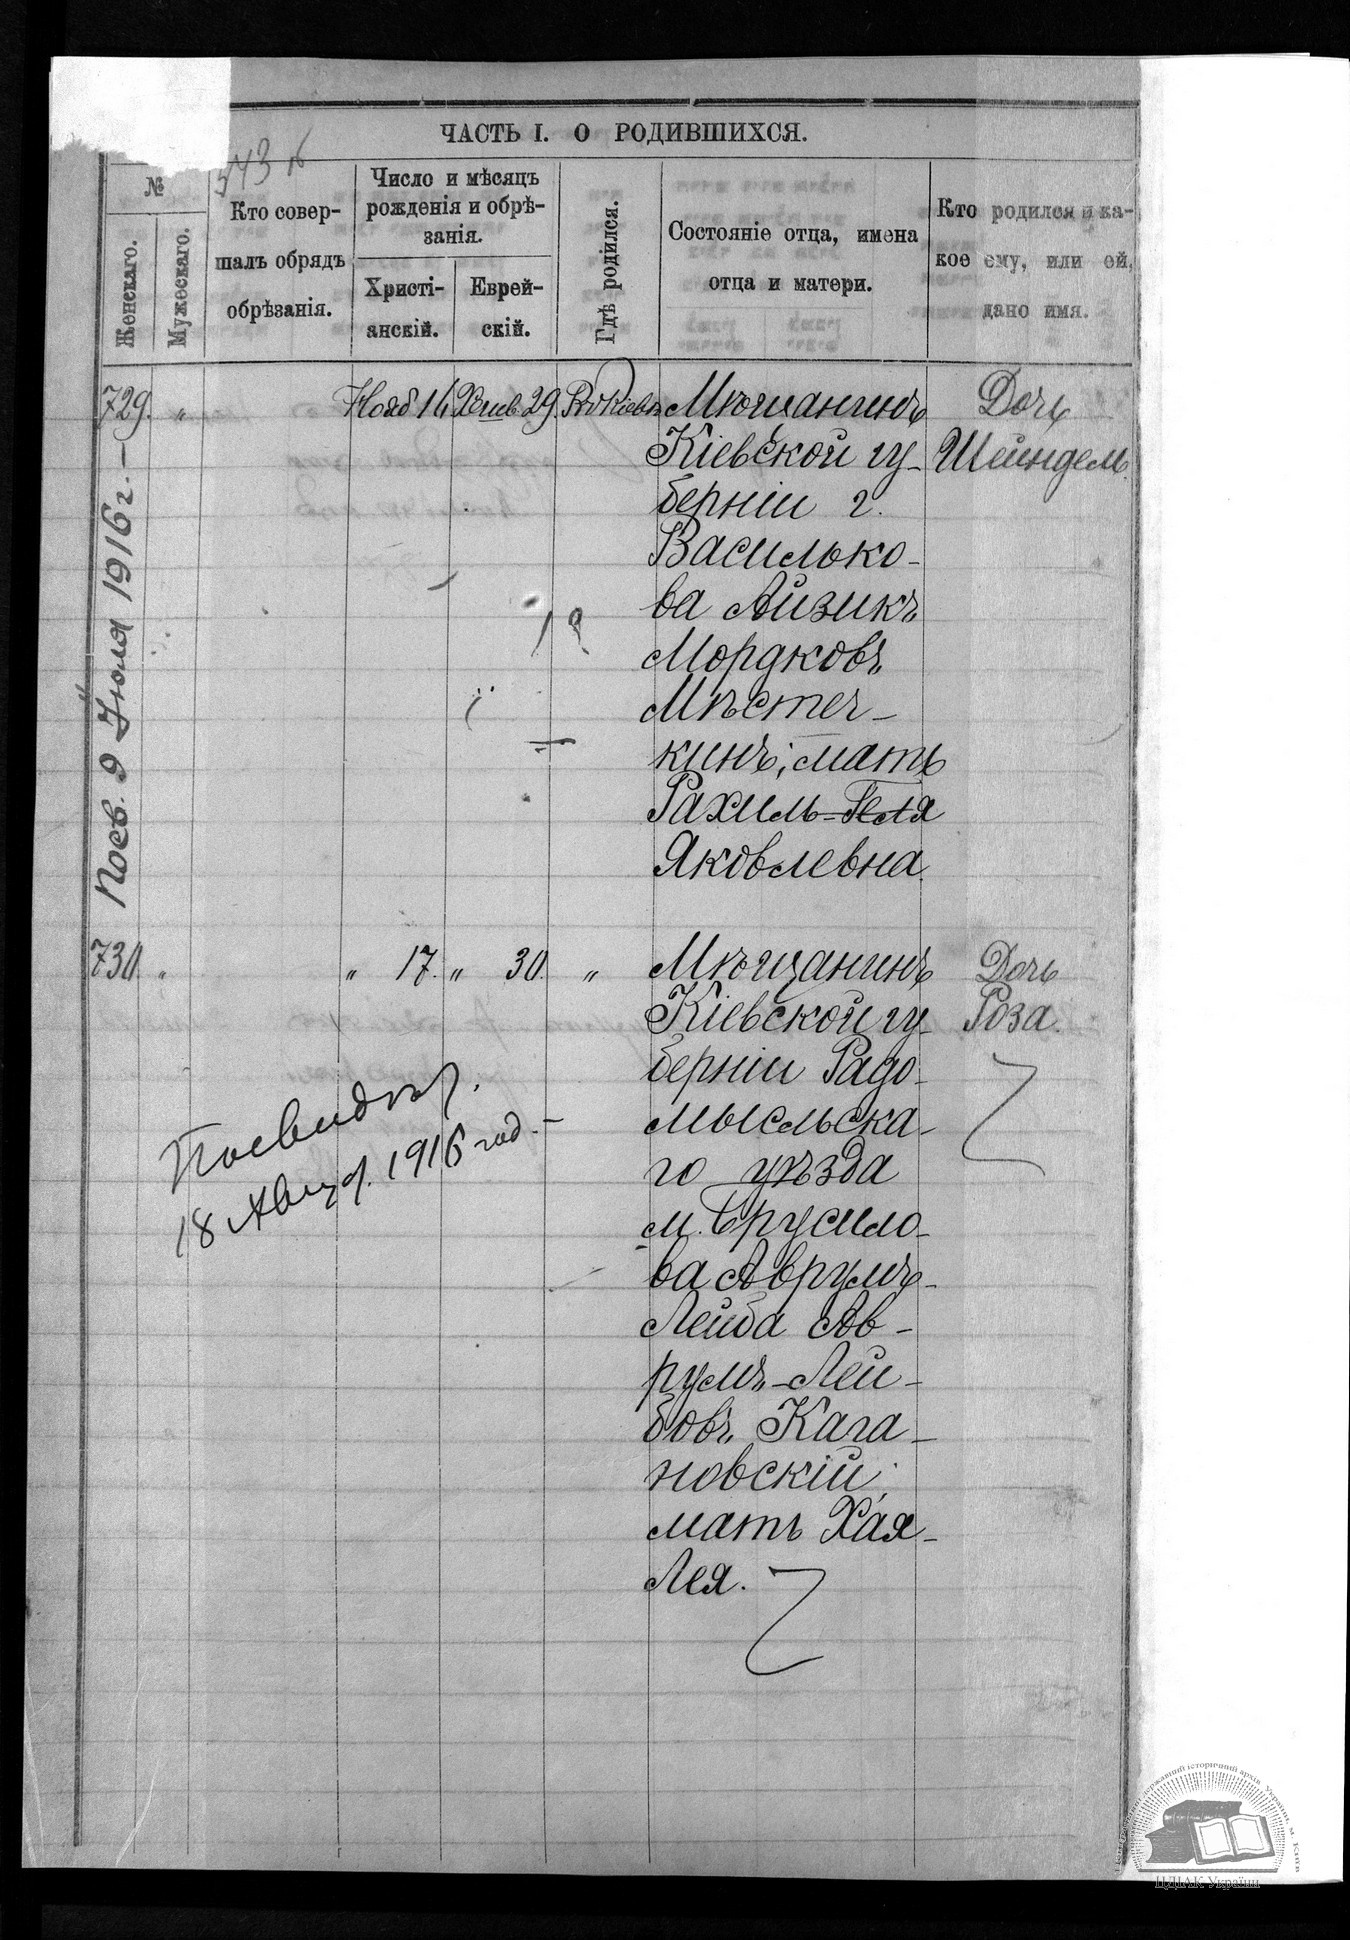 543 об
ЧАСТЬ I. О РОДИВШИХСЯ.
№
Женскаго.
Мужескаго.
Кто совер-
шалъ обрядъ
обрѣзанія.
Число и мѣсяцъ
рожденія и обрѣ-
занія.
Христі-
анскій.
Еврей-
скій.
Гдѣ родился.
Состояніе отца, имена
отца и матери.
Кто родился и ка-
кое ему, или ей,
дано имя.
729. „ Нояб 16 Хешв. 29.
Мѣщанинъ
Кіевской гу-
берніи г.
Василько-
ва Айзикъ
Мордковъ
Мѣстеч-
кинъ; мать
Рахиль-Геля
Яковлевна.
Дочь
Шейндель.
Посв. 9 Іюля 1916 г. —
730. „ „ 17. „ 30. „
Мѣщанинъ
Кіевской гу-
берніи Радо-
мысльска-
го уѣзда
м. Брусило-
ва Аврумъ-
Лейба Ав-
румъ-Лей-
бовъ Кага-
новскій;
мать Хая-
Лея.
Дочь
Роза.
18 Авг. 1916 год. —
ЦДІАК України